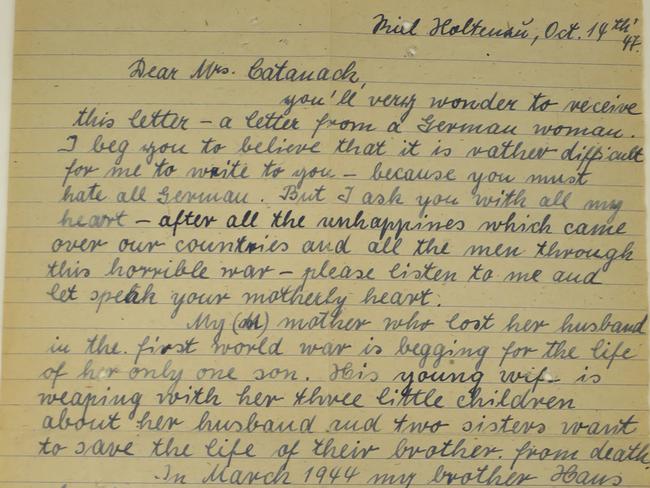 Kiel Holtenau, Oct. 14th'
47.
Dear Mrs. Catanach,
you'll very wonder to receive
this letter – a letter from a German woman.
I beg you to believe that it is rather difficult
for me to write to you – because you must
hate all German. But I ask you with all my
heart – after all the unhappines which came
over our countries and all the men through
this horrible war – please listen to me and
let speak your motherly heart.
My (M) mother who lost her husband
in the first world war is begging for the life
of her only one son. His young wife is
weaping with her three little children
about her husband and two sisters want
to save the life of their brother from death.
In March 1944 my brother Hans